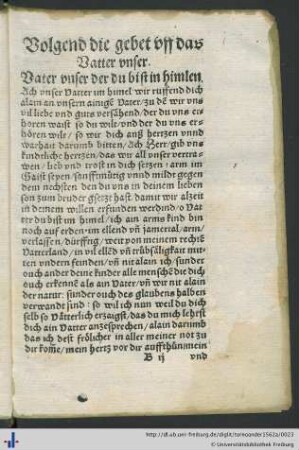 Volgend die gebet vff das
Vatter vnser.
Vater vnser der du bist in himlen
Ach vnser Vatter im himel wir ruffend dich
alain an vnsern ainigē Vater/zu dē wir vns
vil liebe vnd guts versähend/der du vns er
hören waist so du wilt/vnd der du vns er
hören wilt/ so wir dich auß hertzen vnnd
warhait darumb bitten/Ach Herr/gib vns
kindtliche hertzen/das wir all vnser vertru
wen/ lieb vnd trost in dich setzen/arm im
Gaist seyen/sanfftmütig vnnd milt gegen
dem nechsten den du vns in deinem lieben
son zum bruder gsetzt hast/damit wir alzeit
in deinem willen erfunden werdind/o Vat
ter du bist im himel/ich ain arms kind bin
noch auf erden/im ellend vñ jamertal/arm/
verlassen/dürfftig/weit von meinem rechtē
Vatterland/in vil ellēd vñ trübsäligkait mit
ten vndern feinden/vñ nit alain ich/sunder
ouch ander deine kinder alle menschē die dich
ouch erkennē als ain Vater/vñ wir nit alain
der natur/sunder ouch des glaubens halben
verwandt sind/ so wil ich nun weil du dich
selb so Vätterlich erzaigst/das du mich lehrst
dich ain Vatter anzesprechen/alain darumb
das ich dest frölicher in aller meiner not zu
dir komē/mein hertz vor dir auffthū/mein
B ij vnd
http://dl.ub.uni-freiburg.de/diglit/
© Universitätsbibliothek Freiburg